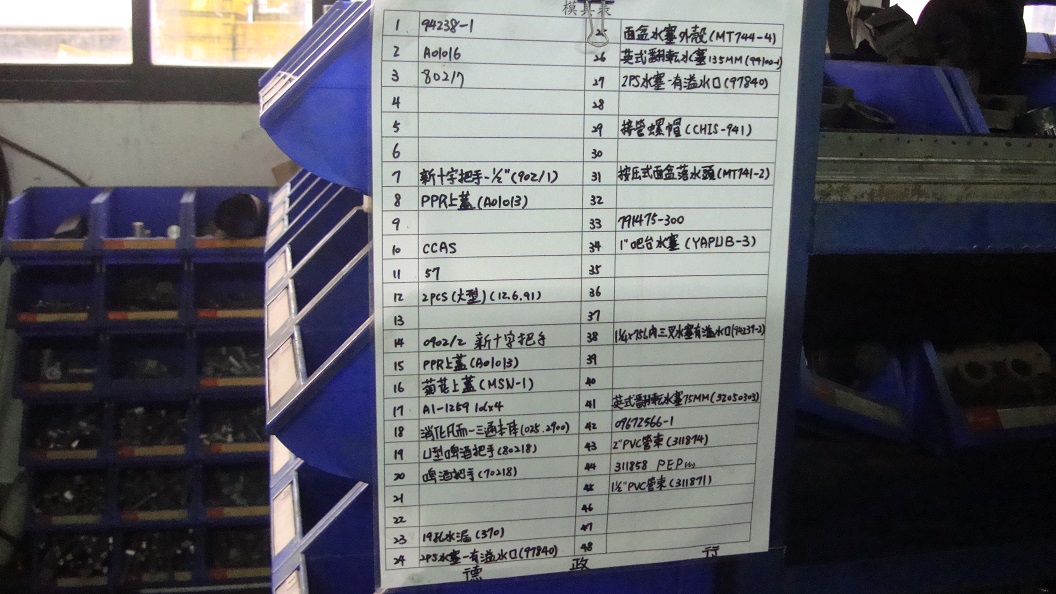 模具表
1 94238-1
2 A01016
3 80217
4
5
6
7 新十字把手-½"(902/1)
8 PPR上蓋(A01013)
9
10 CCAS
11 57
12 2PCS(大型)(12.6.91)
13
14 0902/2 新十字把手
15 PPR上蓋(A01013)
16 菊花上蓋(MSW-1)
17 A1-1259
18 消化凡而-三通本体(025.2900)
19 U型啤酒把手(80218)
20 啤酒把手(70218)
21
22
23 19孔水泥(370)
24 2PS水塞-有溢水口(97840)
25 面盆水塞外殼(MT744-4)
26 英式翻転水塞135MM
27 2PS水塞-有溢水口(97840)
28
29 接管螺帽(CHIS-941)
30
31 按压式面盆落水頭(MT741-2)
32
33 791475-300
34 1"吧台水塞(YAPUB-3)
35
36
37
38 三叉水塞有溢水口(94239-2)
39
40
41 英式翻転水塞75MM(32050303)
42 09672566-1
43 2"PVC管束(311874)
44 311858 PEP
45 1½"PVC管束(311871)
46
47
48
德 政 行